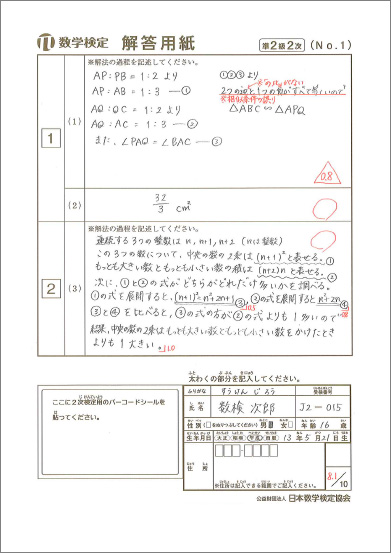 数学検定 解答用紙 準2級2次 (No.1)
※解法の過程を記述してください。
1
(1)
AP:PB = 1:2 より
AP:AB = 1:3 ―①
AQ:QC = 1:2 より
AQ:AC = 1:3 ―②
また、∠PAQ = ∠BAC ―③
①②③ より
2つの辺と1つの角がすべて等しいので
△ABC ∽ △APQ
0.8
(2)
32/3 cm²
2
(3)
※解法の過程を記述してください。
連続する3つの整数は n, n+1, n+2 (nは整数)
この3つの数について、中央の数の2乗は(n+1)²と表せる。①
もっとも大きい数ともっとも小さい数の積は(n+2)nと表せる。②
次に、①と②の式がどちらがどれだけ多いかを調べる。
①の式を展開すると、(n+1)²=n²+2n+1 ③, ②の式を展開するとn²+2n ④
③と④を比べると、③の式の方が④の式よりも1多いので
結果、中央の数の2乗はもっとも大きい数ともっとも小さい数をかけたとき
よりも1大きい。
太わくの部分を記入してください。
ここに2次検定用のバーコードシールを
貼ってください。
ふりがな すうけん じろう 受検番号
氏名 数検 次郎 J2-015
生年月日 大正 昭和 平成 西暦 13年5月21日生
性別 男 女 年齢 16歳
住所
※住所は記入できる範囲でご記入ください。
8.1/10
公益財団法人 日本数学検定協会